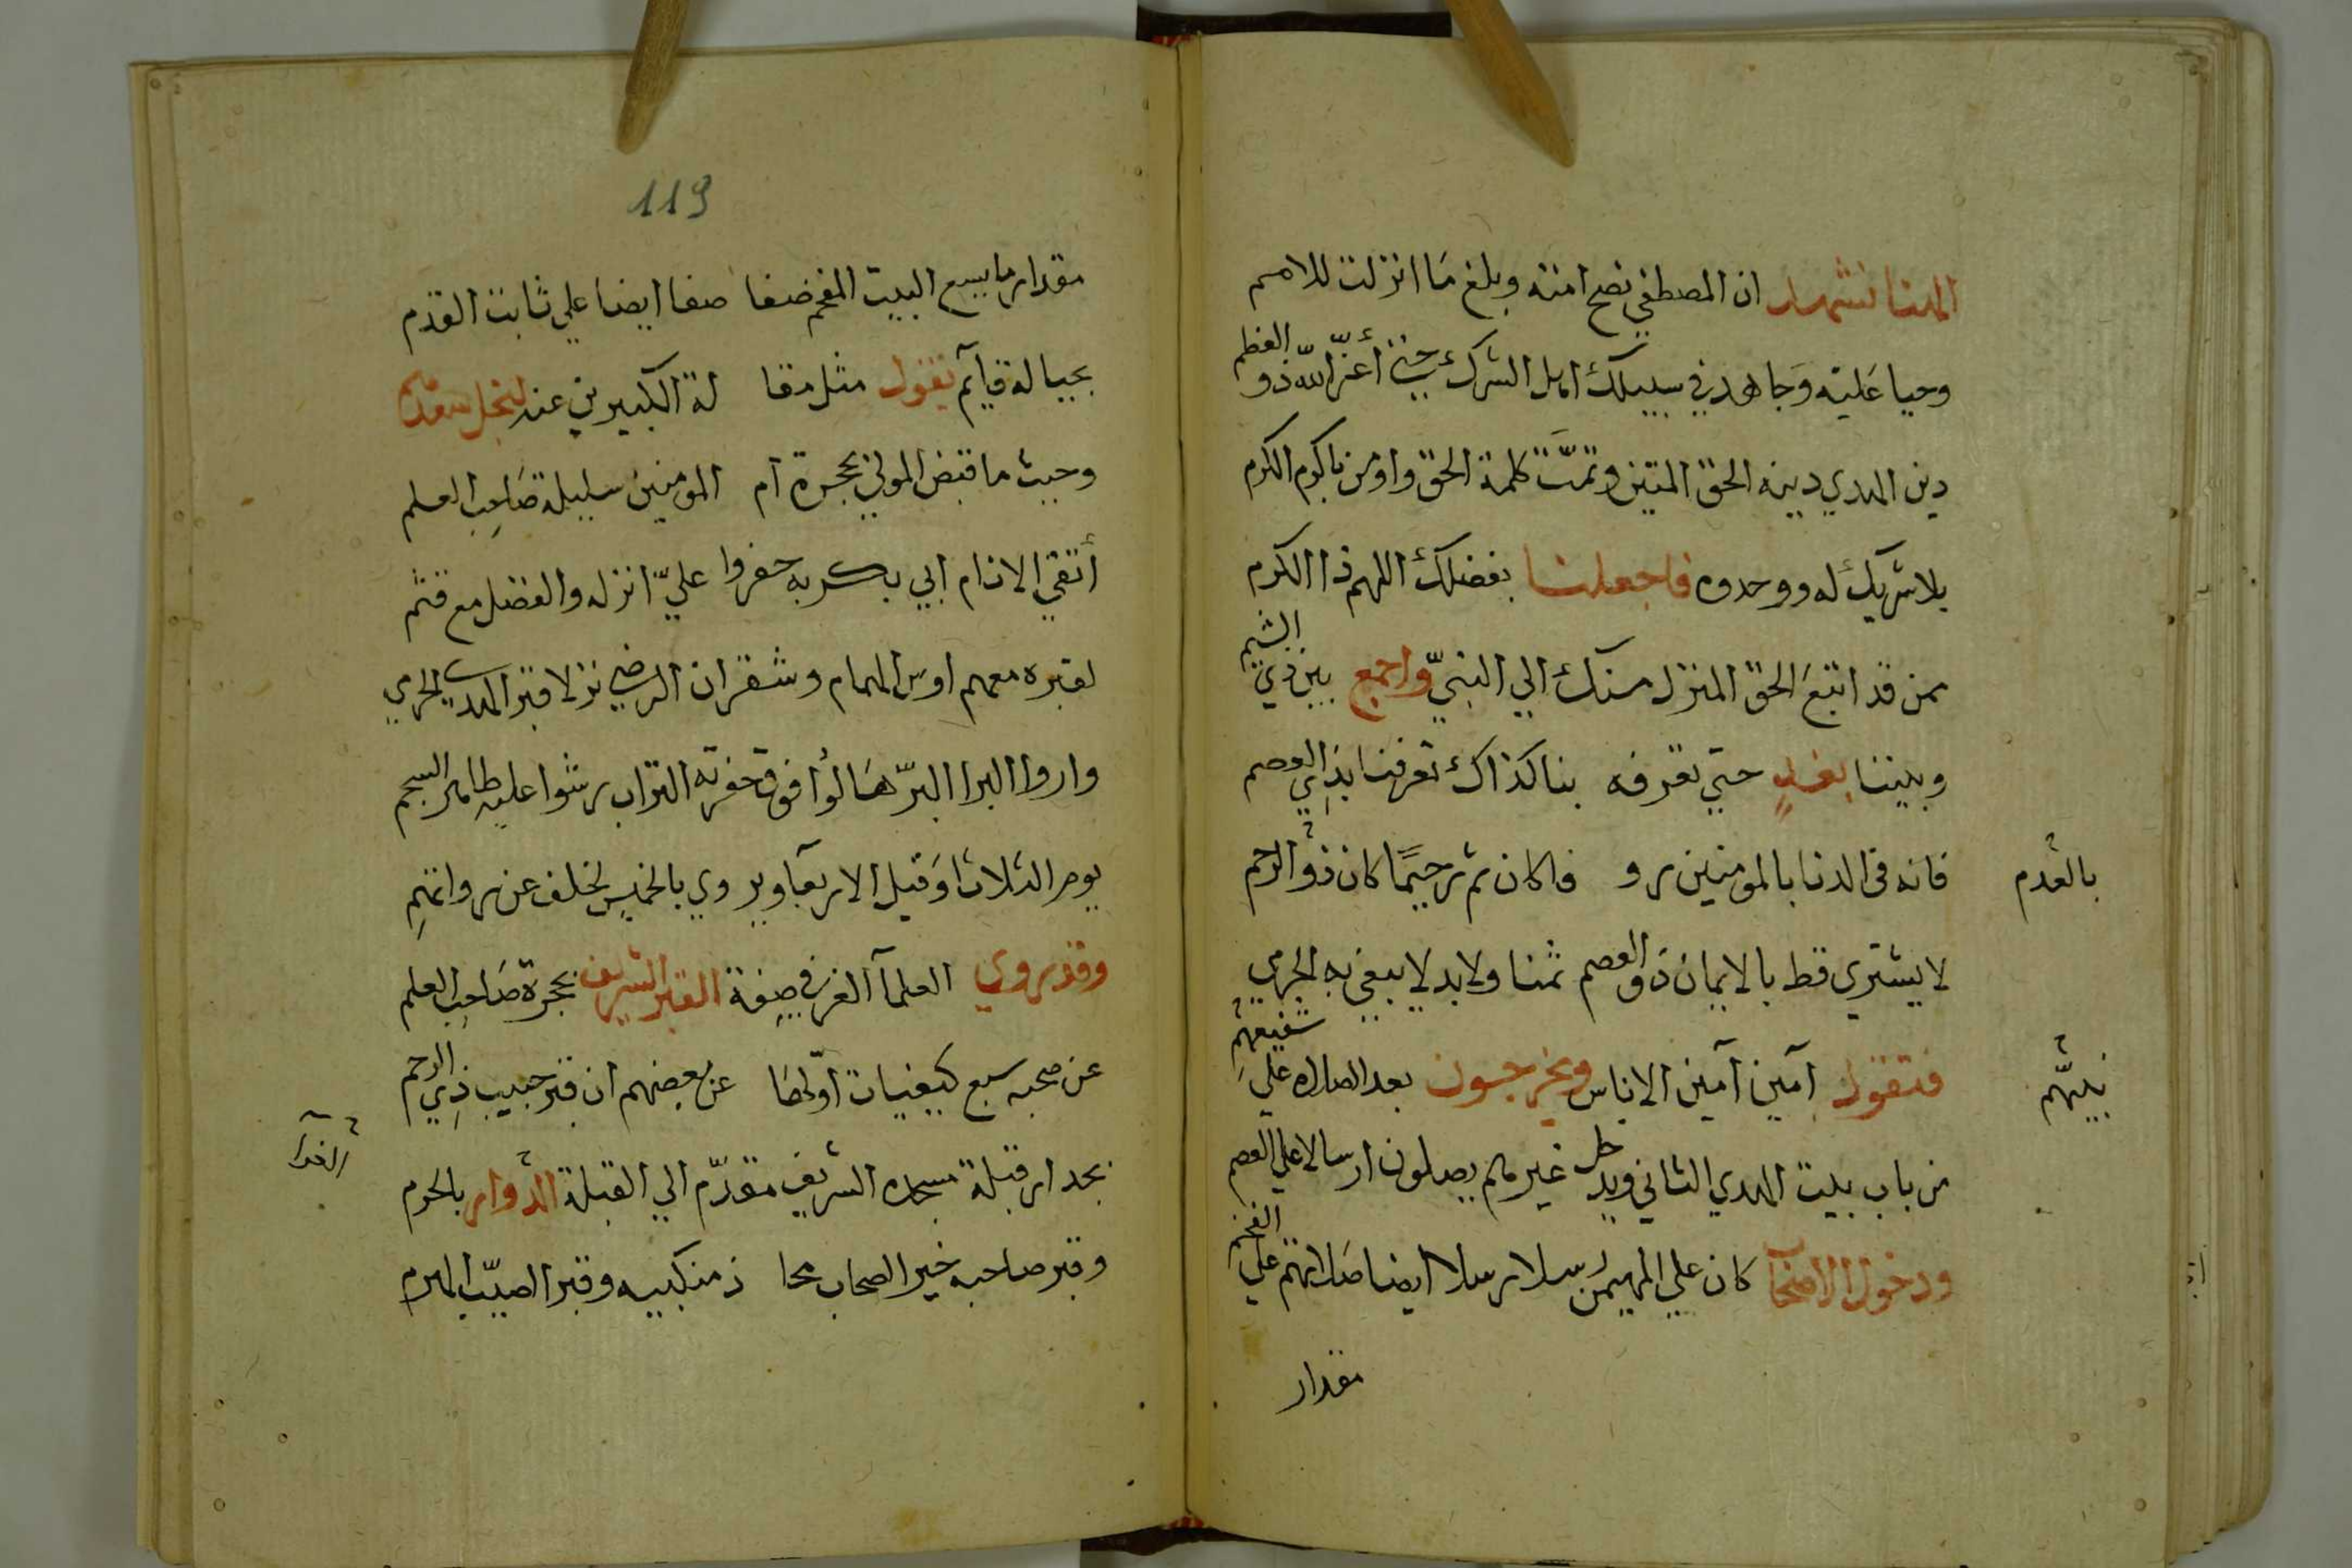 الهنا نشهد ان المصطفي نصح امته وبلغ مَا انزلت للامم
وحيا عَليه وَجاهد في سبيلك اهل الشرك حتي أعزّ الله ذو العظم
دين الهدي دينه الحق المتين وتمَّت كلمة الحق واومن باكرم الكرم
بلا شريك له ووحدوه فاجعلنا بفضلك اللهم ذا الكرم
ممن قد اتبعَ الحق المنزل منك الي النبيّ واجمع بين ذي الشيم
وبيننا بغدٍ حتي تعرفه بنا كذاك تعرفنا بذي العصم
فانه في الدنا بالمومنين رو فا كان ثم رحيمًا كان ذو الرحم
بالقدم
لا يشتري قط بالايمان ذو العصم ثمنا ولا بدلا يبغي به الجرمي
فتقول آمين آمين الاناس ويخرجون بعد الصلاه علي شفيعهم
نبيهم
من باب بيت الهدي الثاني ويدخل غيرهم يصلون ارسالا علي العصم
ودخول الاضحآ كان علي المهيمن رسلا رسلا ايضا صَلاتهم علي الفخم
مقدار
119
مقدار ما يسع البيت المفخم ضفا صفا ايضا علي ثابت القدم
بحياله قيآم تقول مثل مقا لة الكبيرين عند لنجل سعدهم
وحيث ما قبض المولي بحجرة ام المومنين سليلة صَاحِب العلم
أتقي الانام ابي بكر به حفروا عليّ انزله والفضل مع قثم
لقبره معهم اوس الهمام وشقران الرضي نزلا قبر الهدي الحرمي
واروا البرا البرّ هَالوأ فوق حفرته التراب رشوا عليه طاهر السجم
يوم الثلاثا وَقيل الاربعآ ويروي بالخميس لخلف عن رواتهمِ
وقد روي العلمآ الغر في صِفة القبر الشريف بحجرة صَاحِب العلم
عن صحبه سبع كيفيات اوّلها عن بعضهم ان قبر حبيب ذي الرحم
بجدار قبلة مسجده الشريف مقدّم الي القبلة الدوار بالحرم
وقبر صاحبه خير الصحاب محا ذ منكبيه وقبر الصيّب الهرم